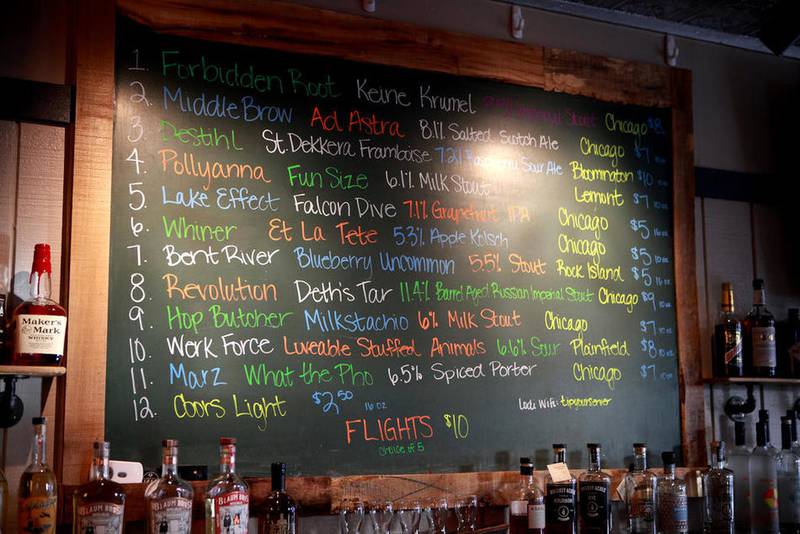 1. Forbidden Root Keine Krumel Imperial Stout Chicago $8
2. Middle Brow Ad Astra 8.1% Salted Scotch Ale Chicago $7
3. Destihl St. Dekkera Framboise 7.2% Raspberry Sour Ale Bloomington $10
4. Pollyanna Fun Size 6.1% Milk Stout Lemont $7
5. Lake Effect Falcon Dive 7.1% Grapefruit IPA Chicago $5
6. Whiner Et La Tete 5.3% Apple Kolsch Chicago $5
7. Bent River Blueberry Uncommon 5.5% Stout Rock Island $5
8. Revolution Deth's Tar 11.4% Barrel Aged Russian Imperial Stout Chicago $9
9. Hop Butcher Milkstachio 6% Milk Stout Chicago $7
10. Werk Force Luveable Stuffed Animals 6.6% Sour Plainfield $8
11. Marz What the Pho 6.5% Spiced Porter Chicago $7
12. Coors Light $2.50 16 oz
Lodi Wifi: tipyourserver
FLIGHTS $10
choice of 5
Maker's Mark
WHISKY
BLAUM BROS
BLAUM BROS